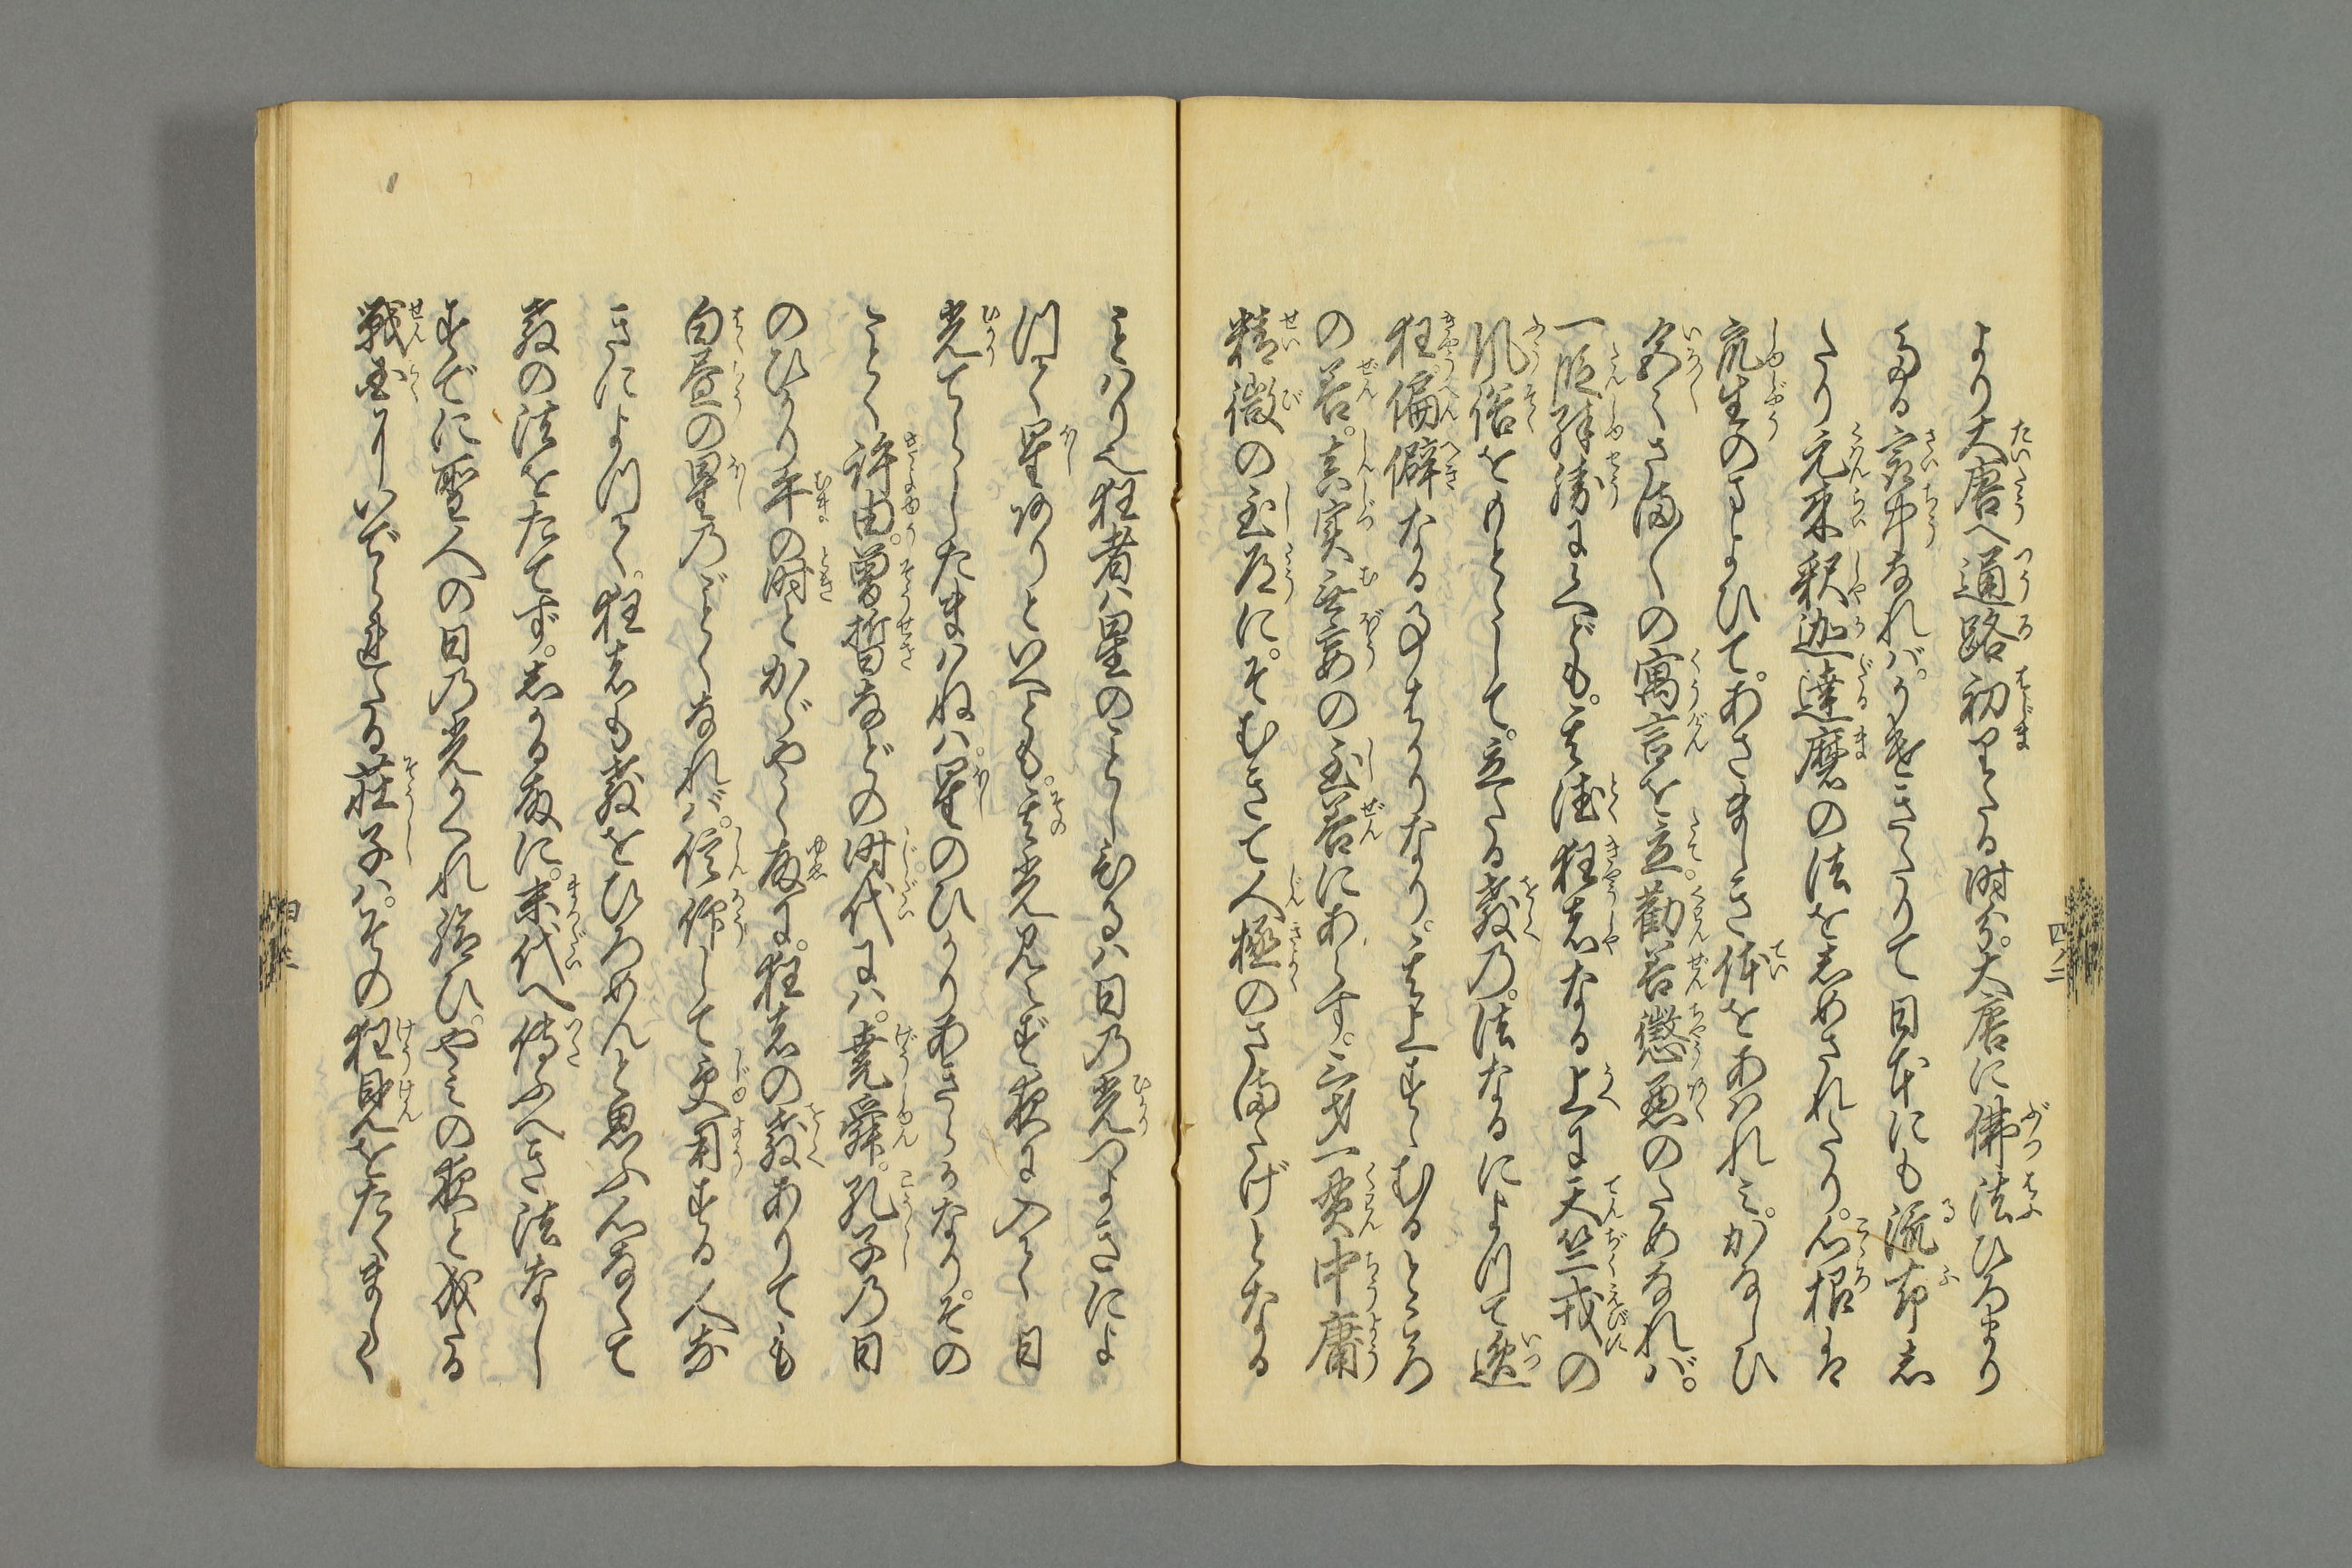 より大唐へ通路初りたる時分。大唐に佛法ひろまり
たる最中なれバ。うけきたりて日本にも流布し
たり元来釈迦達磨の法をしめされたり。心根は
衆生のまよひて。あさましき体をあハれミ。かなしひ
色々さま〳〵の寓言を立。勧善懲悪のためなれバ。
一段殊勝にハへども。其徳狂者なる上に天竺戎の
風俗をもととして。立たる教の。法なるによつて逸
狂偏僻なる事はかりなり。其上すゝむるところ
の善。真実無妄の至善にあらす。三才一貫中庸
精微の至道に。そむきて人極のさまたげとなる
ことハりハ狂者ハ星のことし。ひるハ日の光つよきによ
つて星ありといへとも。其光見えず夜に入て日
光てらしたまハねハ。星のひかりあきらかなり。その
ことく許由。曽晳などの時代にハ。堯舜。孔子の日
のひかり午の時とかゞやく故に。狂者の教ありても
白昼の星のごとくなれバ。信仰して受用する人な
きによつて。狂者も教をひろめんと思ふ心なくて
教の法をたてず。しかる故に。末代へ傳ふへき法なし
すでに聖人の日の光かくれ給ひ。やミの夜と成たる
戦国にいでられたる荘子ハ。その狂見をたくましく